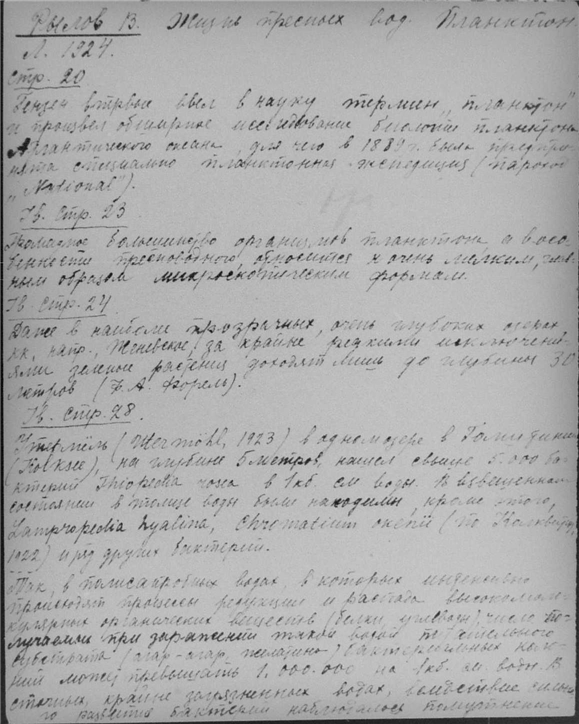 Рылов В. Жизнь пресных вод. Планктон
Л. 1924.
Стр. 20
Гензен впервые ввел в науку термин "планктон"
и произвел обширные исследования биологии планктона
Атлантического океана, для чего в 1889 г. была предпри-
нята специально планктонная экспедиция (пароход
"National").
Ib. Стр. 23
Громадное большинство организмов планктона, а в осо-
бенности пресноводного, относится к очень мелким, глав-
ным образом микроскопическим формам.
Ib. Стр. 24
Даже в наиболее прозрачных, очень глубоких озерах
как, напр., Женевское, за крайне редкими исключени-
ями зеленые растения доходят лишь до глубины 30
метров (F. A. Форель).
Ib. Стр. 28.
(Utermöhl, 1923) в одном озере в
на глубине 5 метров, нашел свыше 5.000 бак-
терий Thiopedia rosea в 1 кб. см воды. Во взвешенном
состоянии в толще воды были находимы, кроме этого,
Lampropedia hyalina, Chromatium okenii (по
1922) и ряд других бактерий.
Так, в полисапробных водах, в которых
происходят процессы редукции и распада высокомоле-
кулярных органических веществ (белки, углеводы), число по-
лучаемой при заражении такой водой питательного
субстрата (агар-агар, желатина) бактериальных коло-
ний может превышать 1.000.000 на 1 кб. см. воды. В
сточных, крайне загрязненных водах, вследствие сильно-
го развития бактерий наблюдалось помутнение